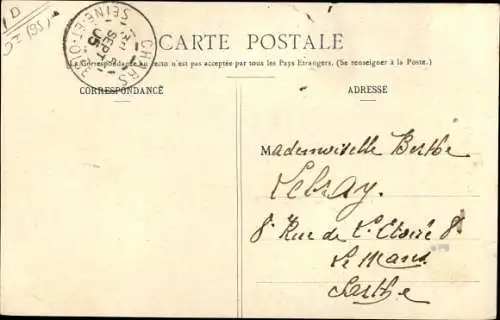 D
SI 195
CHARS
SEPT
05
SEINE-ET-OISE
CARTE POSTALE
La Correspondance au recto n'est pas acceptée par tous les Pays Etrangers. (Se renseigner à la Poste.)
CORRESPONDANCE
ADRESSE
Mademoiselle Berthe
Lebray.
8 Rue de 8
Le Mans
Sarthe